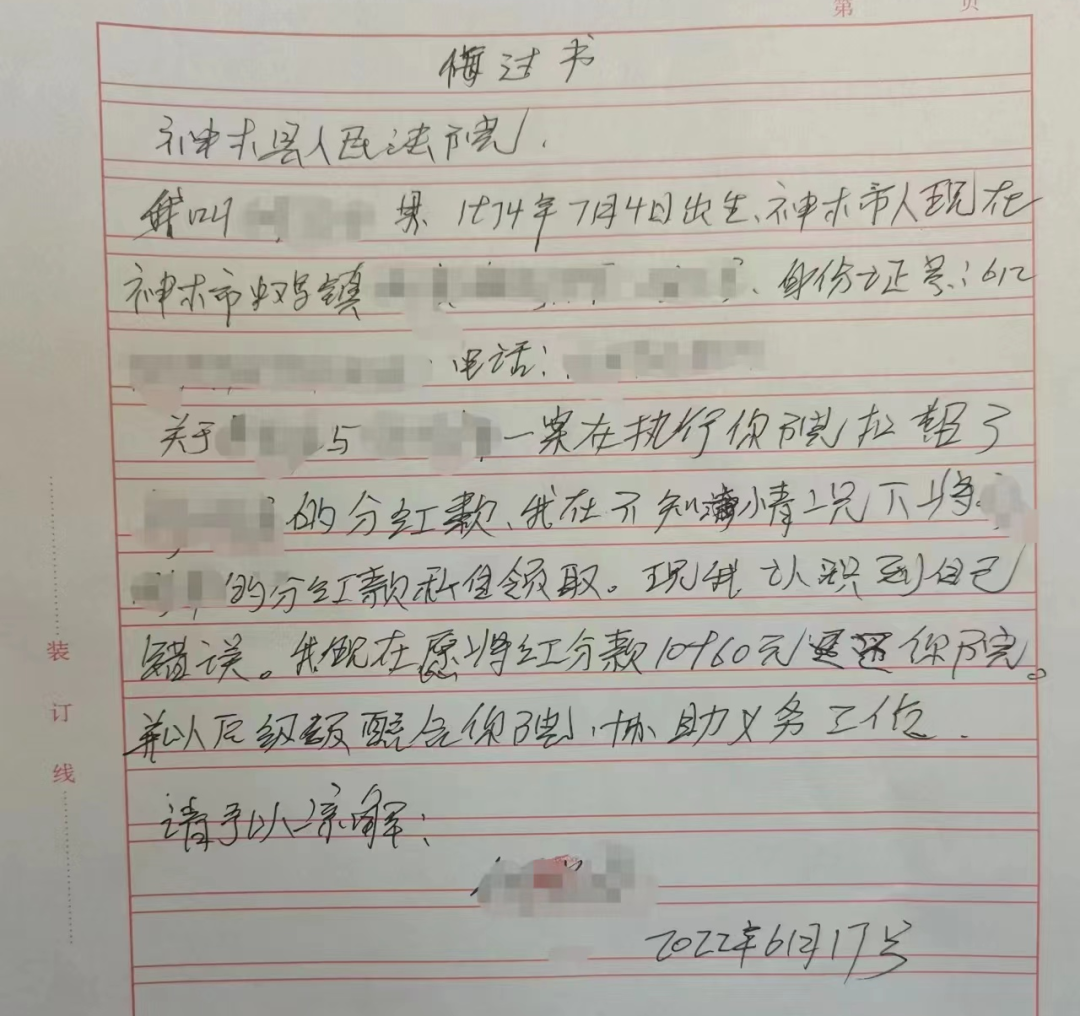 第 页
悔过书
神木县人民法院.
我叫 男. 1974年7月4日出生、神木市人现在
神木市 镇 、身份证号:612
电话:
关于 与 一案在执行你院扣留了
的分红款、我在不知 情况下将
的分红款私自领取。现我认识到自己
错误。我现在愿将红分款10960元退还你院。
并以后级极配合你院,协助义务工作.
请予以谅解:
2022年6月17号
装
订
线